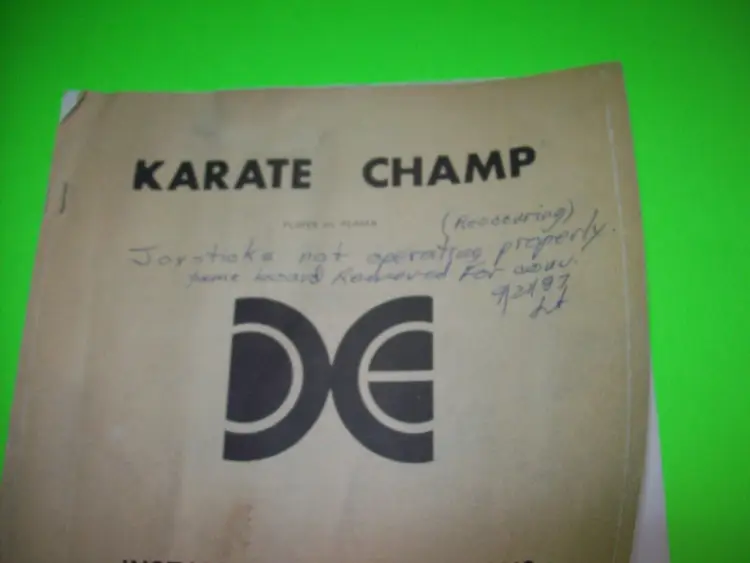 KARATE CHAMP
PLAYER vs PLAYER
(Reoccuring)
Joysticks not operating properly.
Game board Removed For conv.
9/21/87
DE